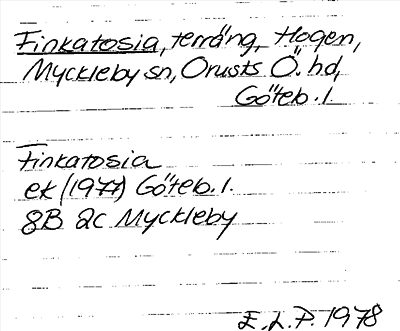 Finkatosia, terräng, Hogen,
Myckleby sn, Orusts Ö. hd,
Göteb. l.
Finkatosia
ek (1977) Göteb. l.
8B 2c Myckleby
E. L. P. 1978